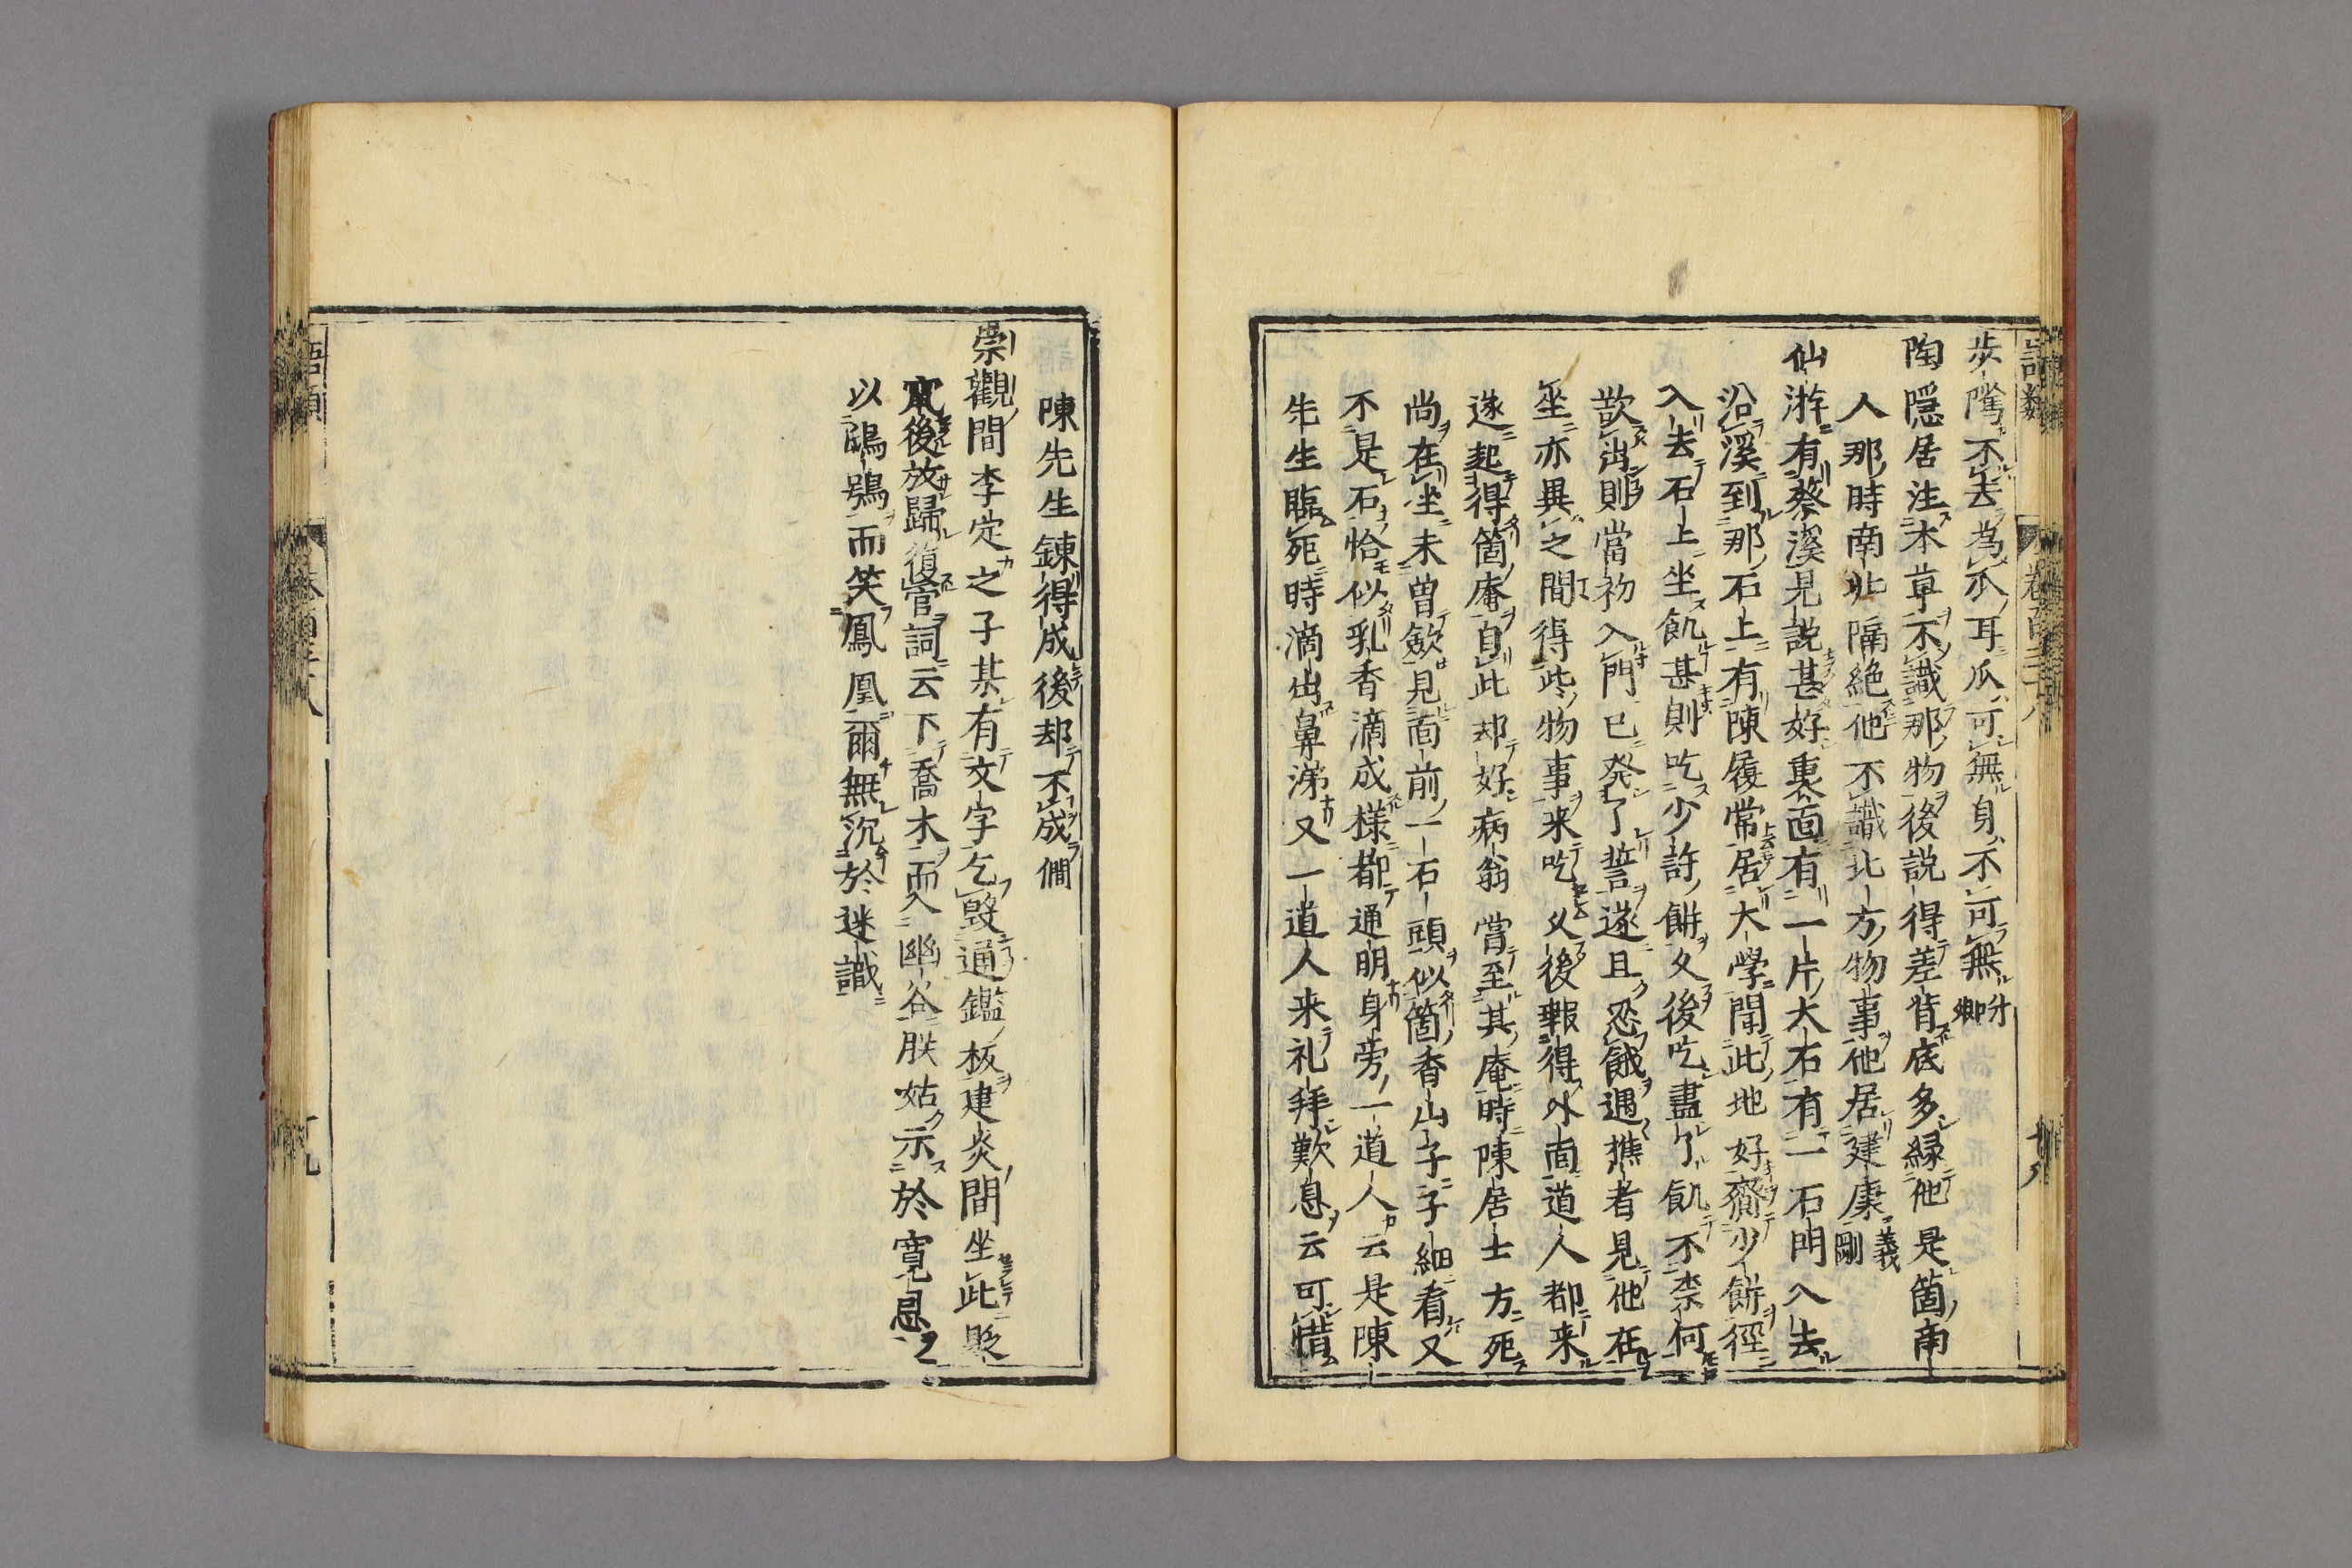 歩隲不去為爪耳爪可無身不可無方卿
陶隱居注本草不識那物後説得差背底多縁他是箇南
人那時南北隔絶他不識北方物事他居建康義剛
仙游有蔡溪見説甚好裏面有一片大石有二石門入去
沿溪到那石上有陳履常居大學聞此地好齎少餅徑
入去石上坐飢甚則吃少許餅久後吃盡了飢不柰何
歆出則當初入門已発了誓遂且忍餓遇樵者見他在
坐亦異之間得些物事来吃久後報得外面道人都来
遂起得箇庵自此却好病翁嘗至其庵時陳居士方死
尚在坐未曽歛見面前一石頭似箇香山子子細看又
不是石恰似乳香滴成様都通明身旁一道人云是陳
先生臨死時滴出鼻涕又一道人来礼拜歎息云可惜
陳先生錬得成後却不成僩
崇觀間李定之子某有文字乞毀通鑑板建炎間坐此貶
竄後放歸復官詞云下喬木而入幽谷朕姑示於寛恩
以鴟鴞而笑鳳凰爾無沉於迷識